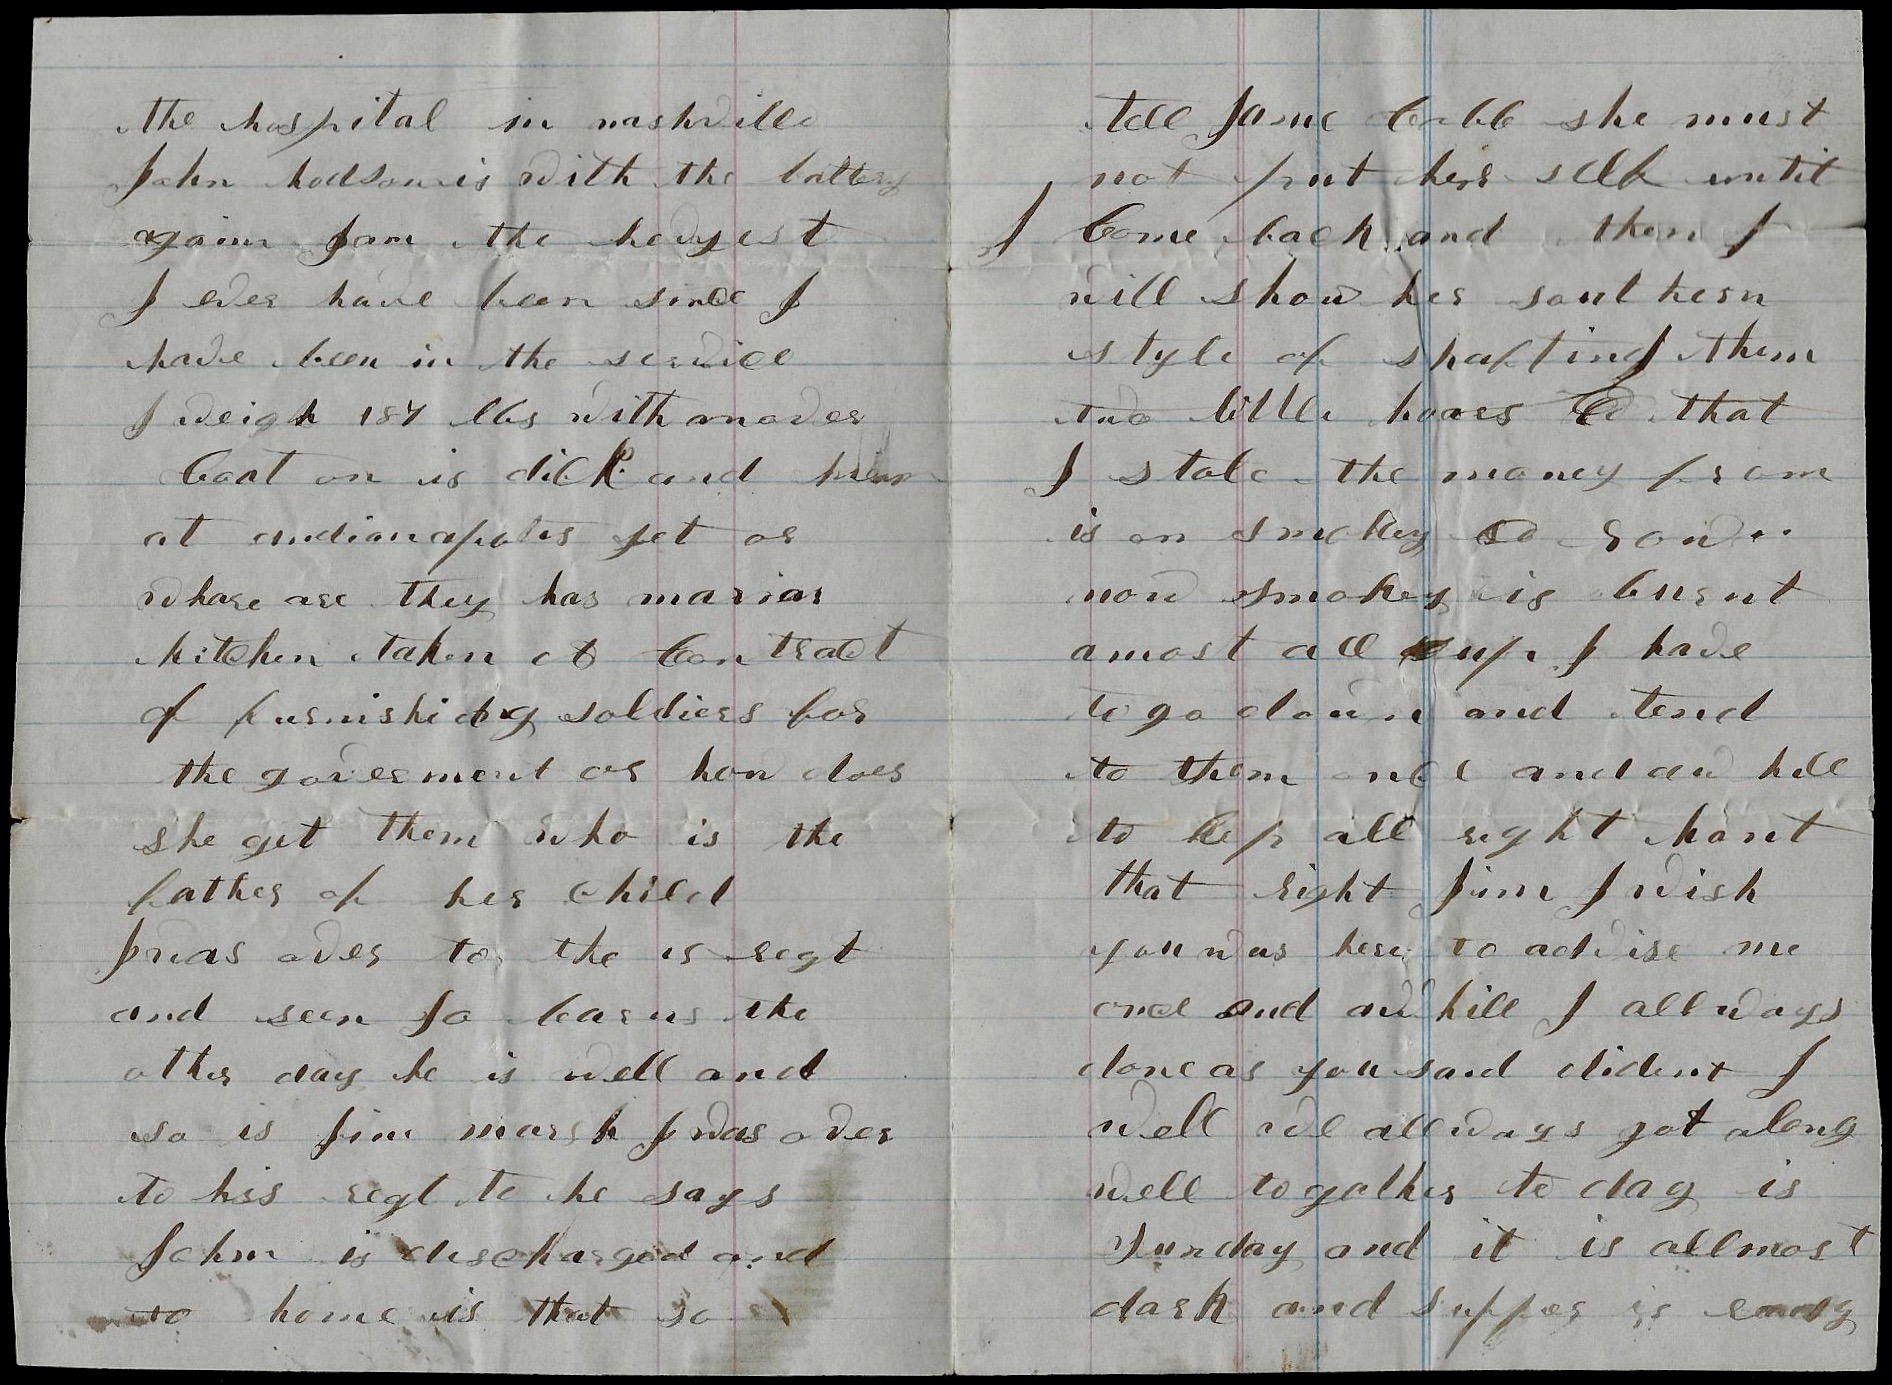 the hospital in nashville
John hodson is with the battery
again I am the hevyest
I ever have been since I
have been in the service
I weigh 187 lbs with an over
Coat on is dick and
at indianapolis yet or
whare are they has
kitchen taken a Contract
of furnishidng soldiers for
the goverment or how does
she get them who is the
father of her Child
I was over to the 15 regt
and seen Jo the
other day he is well and
so is Jim marsh I was over
to his regt to he says
John is discharged and
to home is that so
tell Jane Cobb she must
not put hers sllf until
I Come back and then I
will show her southern
style of shafting them
two little hoars that
I stole the money from
is on smokey row
now smokey is burnt
amost all up I have
to go down and tend
to them onCe and aw hill
to kep all right hant
that right Jim I wish
you was here to advise me
once and aw hill I allways
done as you said dident I
well we allways got along
well togather to day is
Sunday and it is allmost
dark and supper is readg